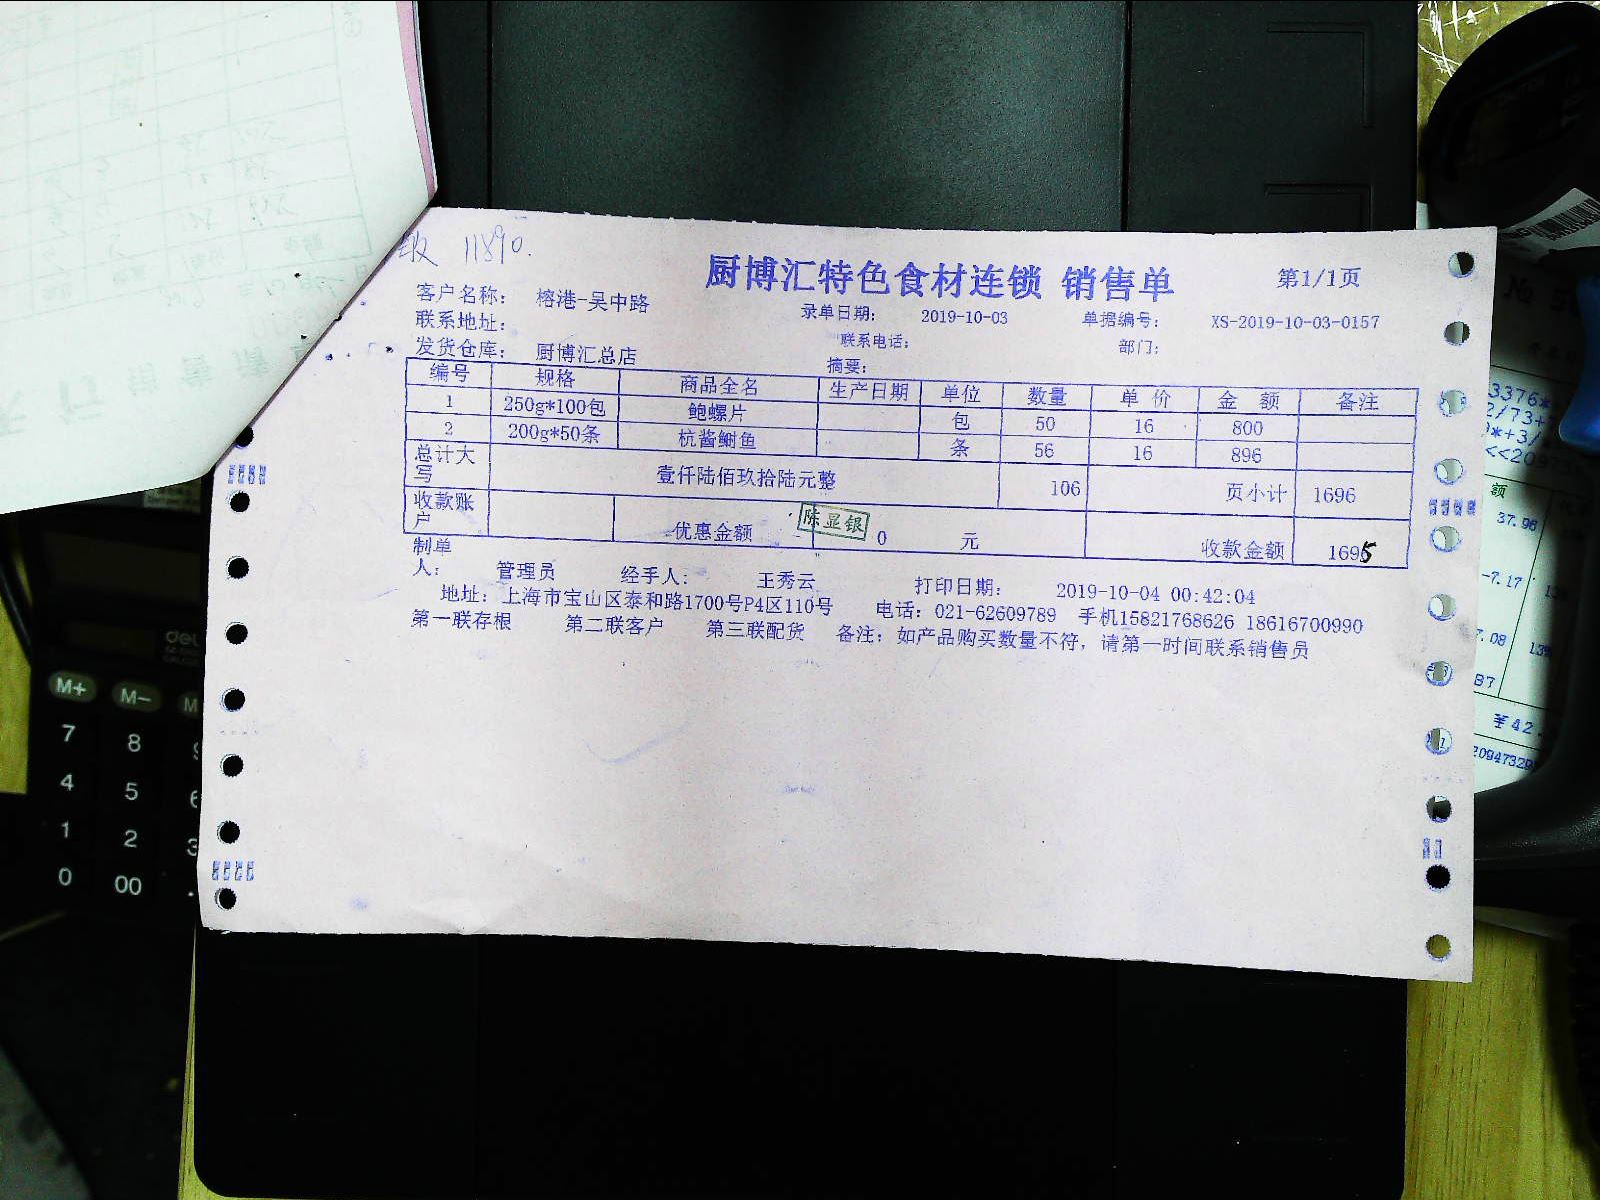 11890.
厨博汇特色食材连锁 销售单
第1/1页
客户名称： 榕港-吴中路
录单日期： 2019-10-03 单据编号： XS-2019-10-03-0157
联系地址： 联系电话： 部门：
发货仓库： 厨博汇总店 摘要：
编号 规格 商品全名 生产日期 单位 数量 单价 金额 备注
1 250g*100包 鲍螺片 包 50 16 800
2 200g*50条 杭酱鮰鱼 条 56 16 896
总计大写 壹仟陆佰玖拾陆元整 106 页小计 1696
收款账户 优惠金额 0 元 收款金额 1695
陈显银
制单人： 管理员 经手人： 王秀云 打印日期： 2019-10-04 00:42:04
地址：上海市宝山区泰和路1700号P4区110号 电话：021-62609789 手机15821768626 18616700990
第一联存根 第二联客户 第三联配货 备注：如产品购买数量不符，请第一时间联系销售员
M+ M-
7 8
4 5
1 2 3
0 00 .
3376*
37.96
-7.17
7.08 13%
87
¥42.